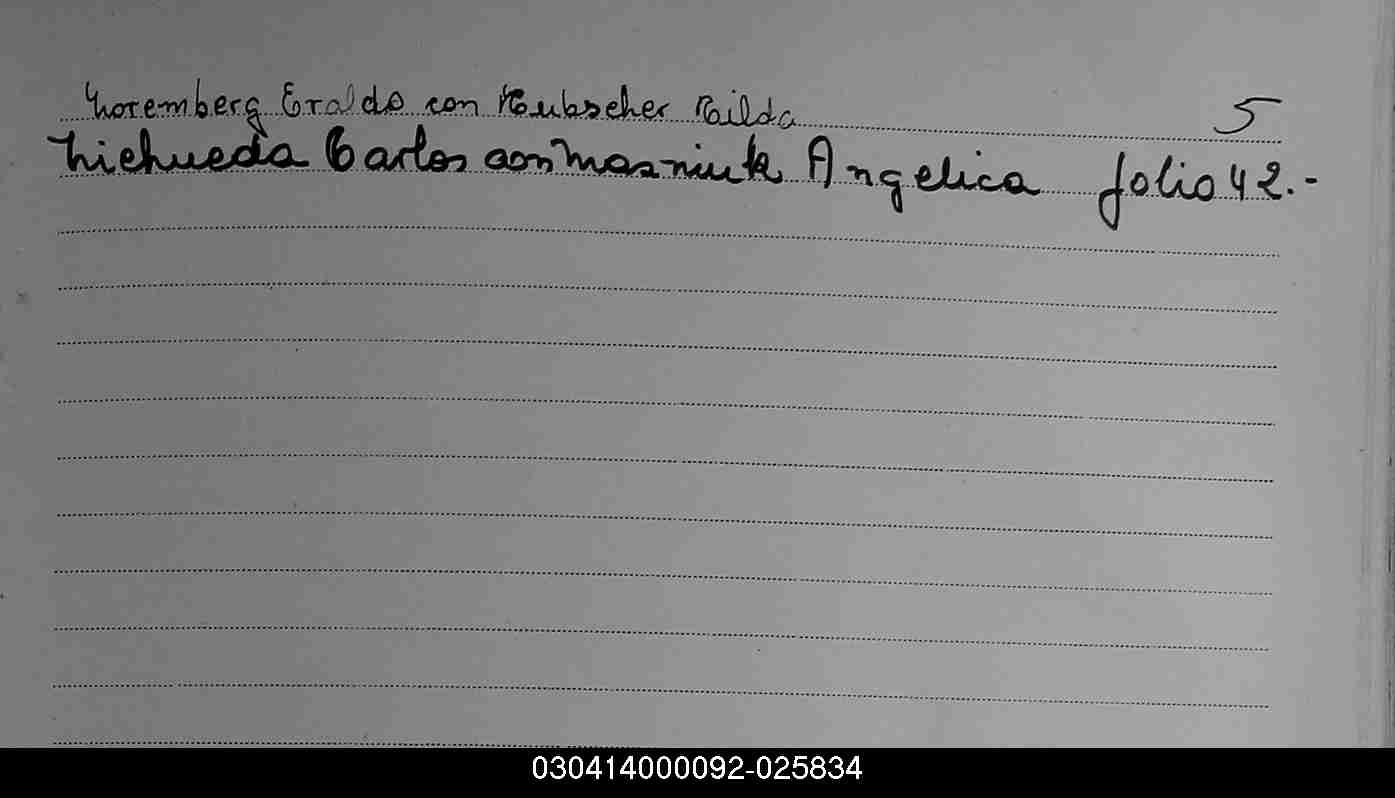 Noremberg Eraldo con Heubscher Nilda 5
Nichueda Carlos con Angelica folio 42.-
030414000092-025834